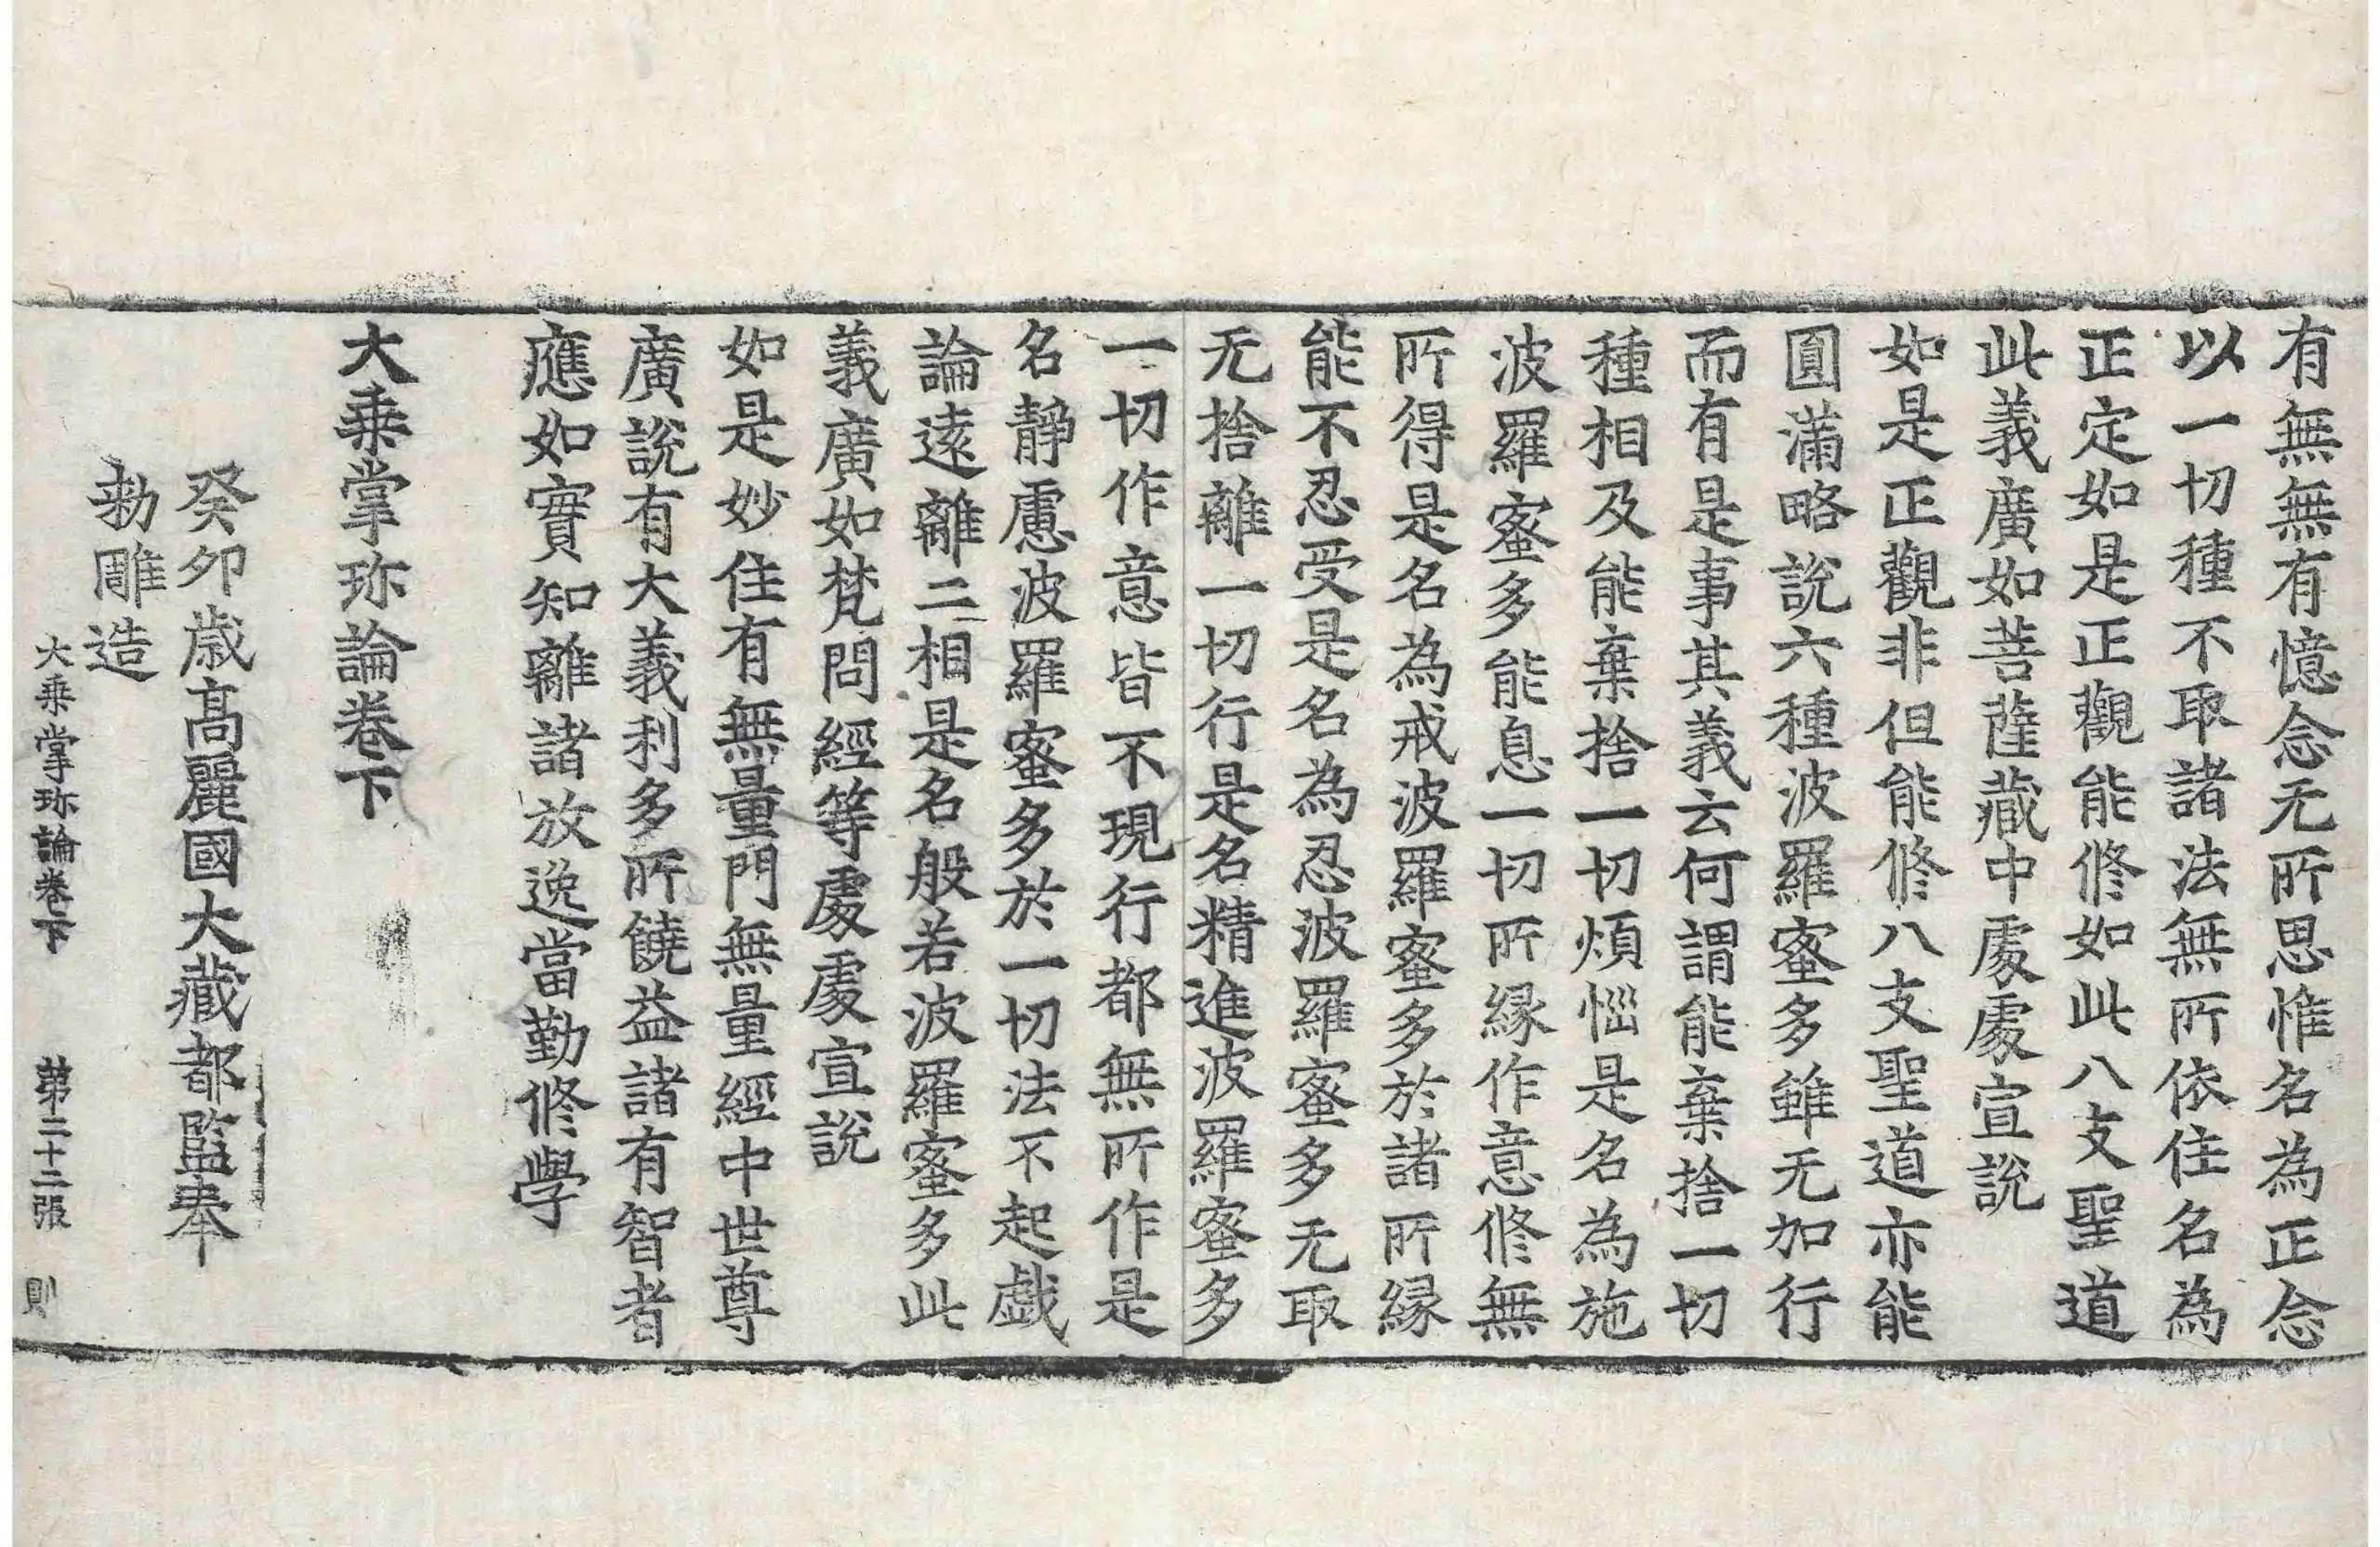 有無無有憶念无所思惟名為正念
以一切種不取諸法無所依住名為
正定如是正觀能修如此八支聖道
此義廣如菩薩藏中處處宣說
如是正觀非但能修八支聖道亦能
圓滿略說六種波羅蜜多雖无加行
而有是事其義云何謂能棄捨一切
種相及能棄捨一切煩惱是名為施
波羅蜜多能息一切所緣作意修無
所得是名為戒波羅蜜多於諸所緣
能不忍受是名為忍波羅蜜多无取
无捨離一切行是名精進波羅蜜多
一切作意皆不現行都無所作是
名靜慮波羅蜜多於一切法不起戲
論遠離二相是名般若波羅蜜多此
義廣如梵問經等處處宣說
如是妙住有無量門無量經中世尊
廣說有大義利多所饒益諸有智者
應如實知離諸放逸當勤修學
大乗掌珎論卷下
癸卯歲高麗國大藏都監奉
勅雕造
大乗掌珎論卷下 第二十二張 則